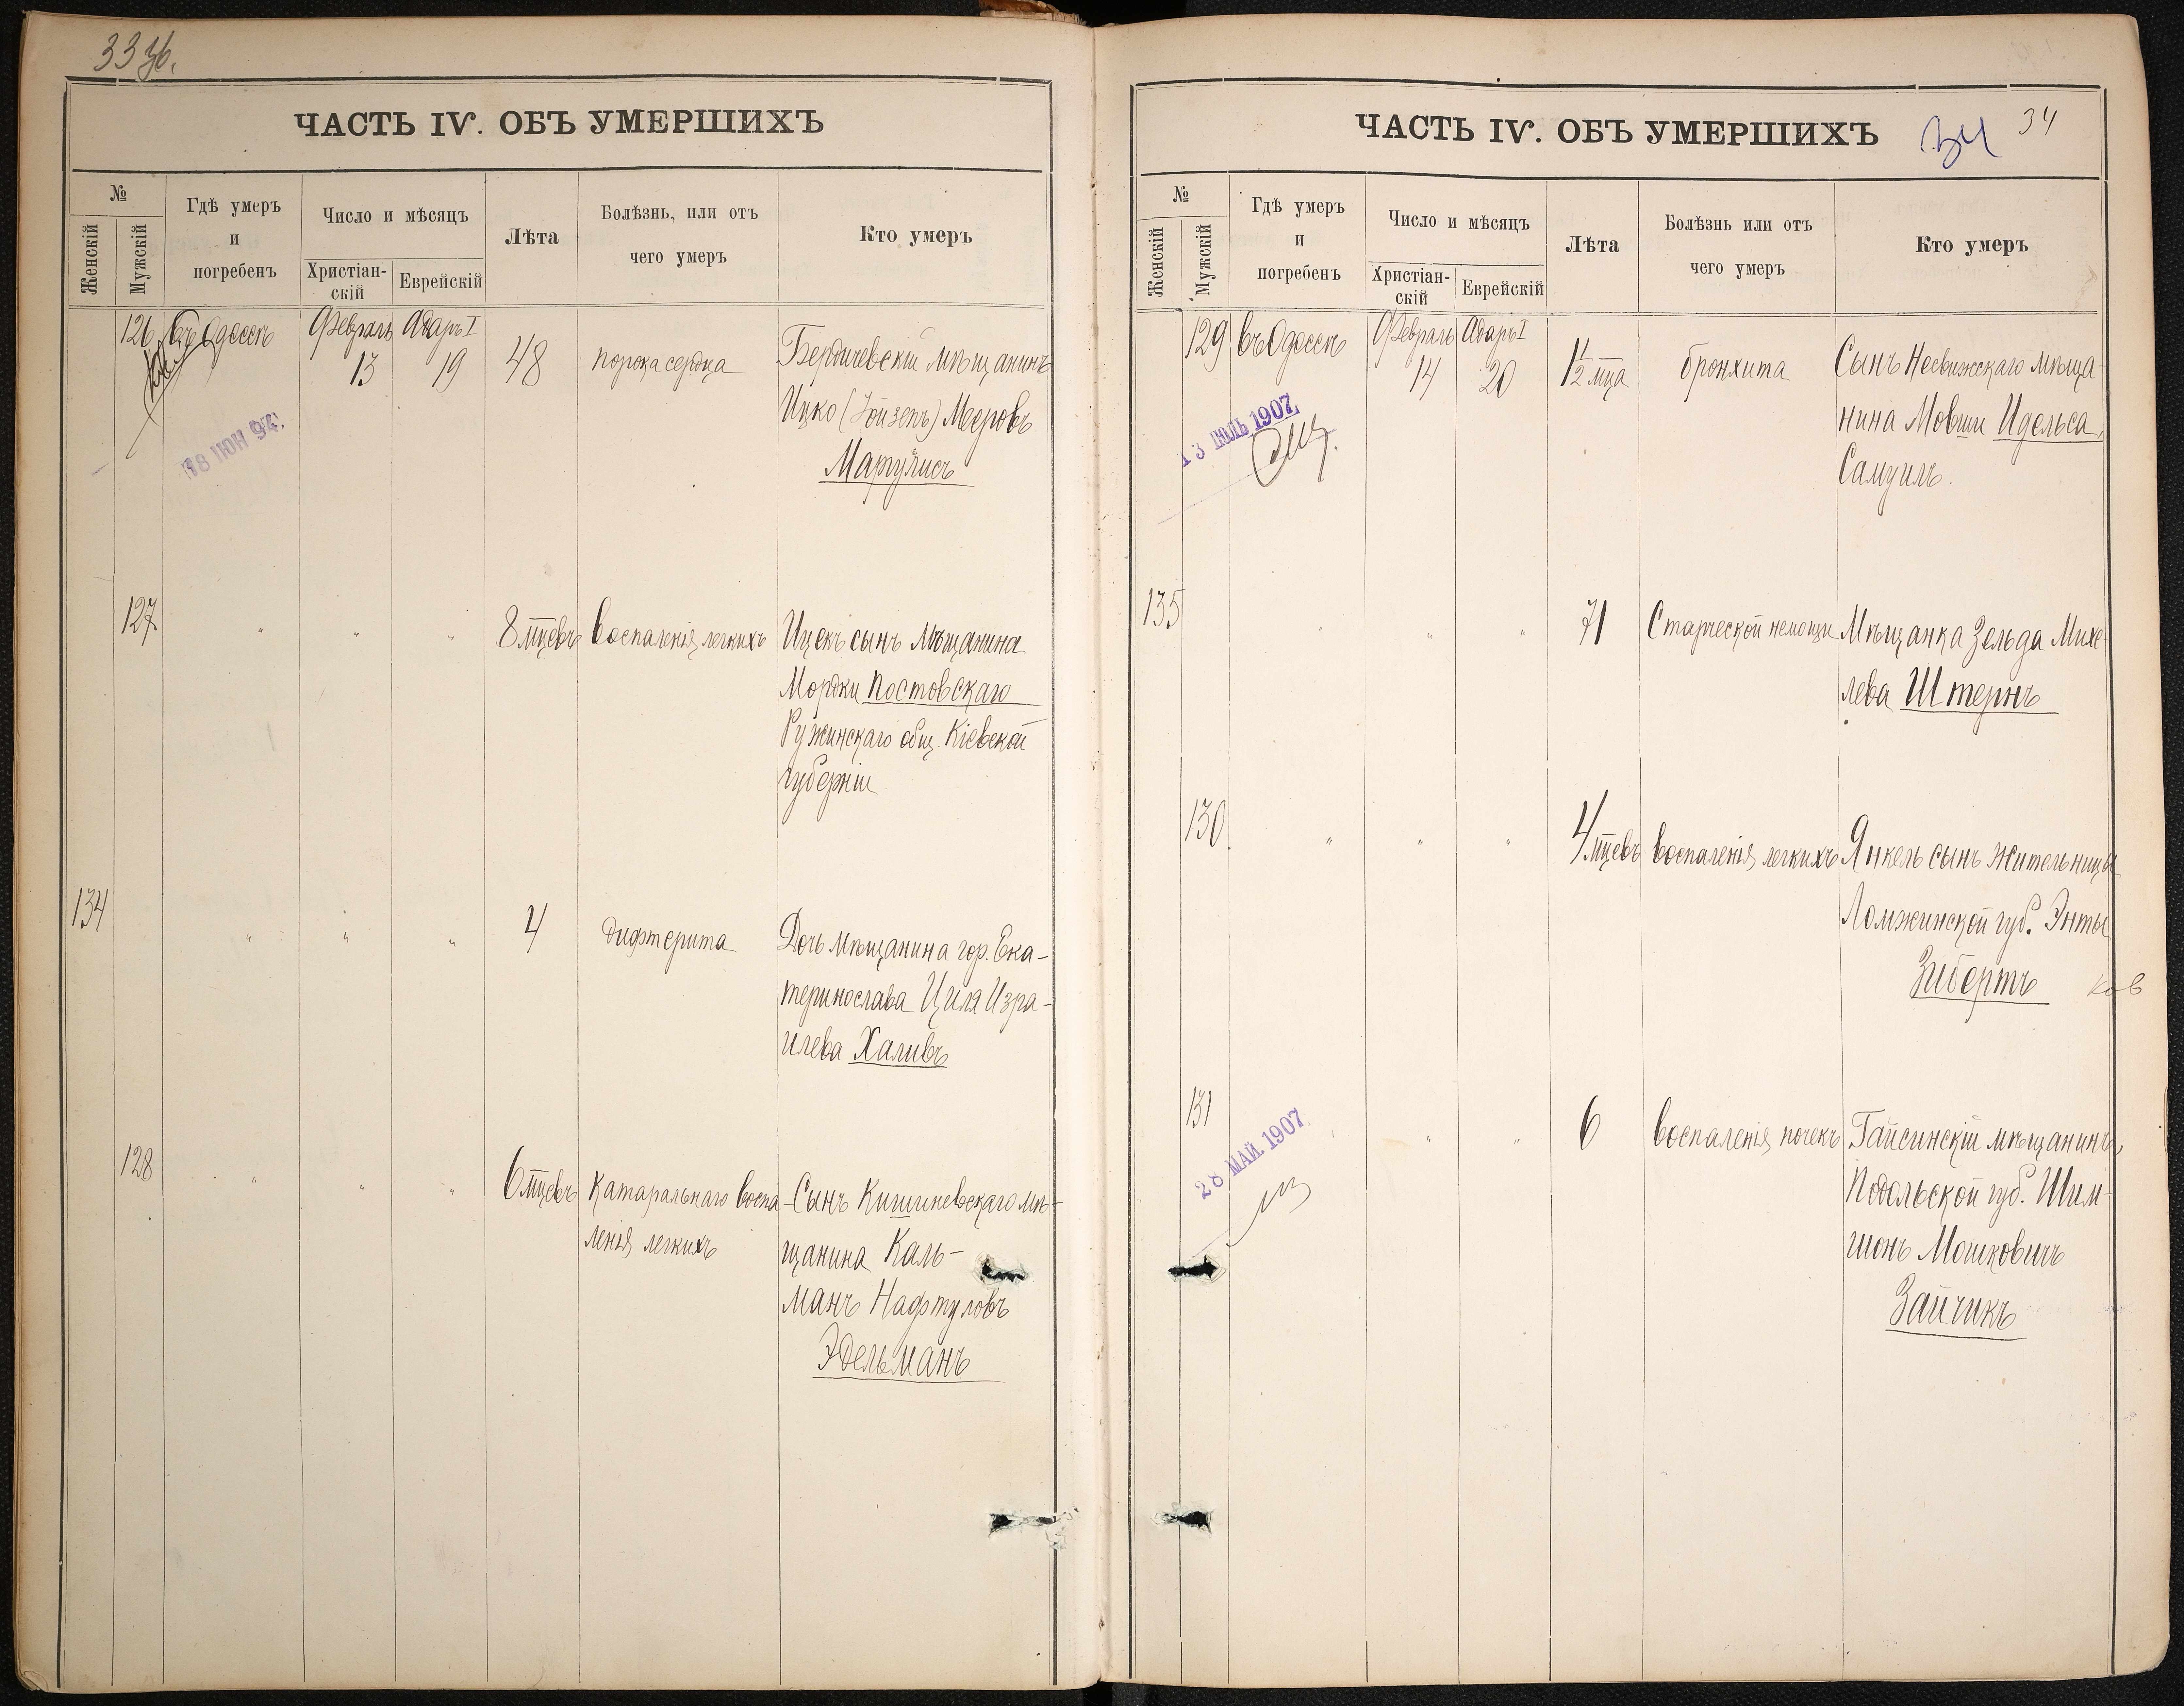 ЧАСТЬ IV. ОБЪ УМЕРШИХЪ
№
Женскій
Мужскій
Гдѣ умеръ
и
погребенъ
Число и мѣсяцъ
Христіан-
скій
Еврейскій
Лѣта
Болѣзнь, или отъ
чего умеръ
Кто умеръ
126 въ Одессѣ Февраль Адаръ I
13 19 48 порока сердца Бердичевскій мѣщанинъ
Ицко (Йойзепъ) Мееровъ
Маргулисъ
127 " " " 8 мцевъ воспаленія легкихъ Ицекъ сынъ мѣщанина
Мордки Постовскаго
Ружинскаго общ. Кіевской
губерніи
134 " " " 4 дифтерита Дочь мѣщанина гор. Ека-
теринослава Циля Изра-
илева Халивъ
128 " " " 6 мцевъ катаральнаго воспа- Сынъ Кишиневскаго мѣ-
ленія легкихъ щанина Каль-
манъ Нафтуловъ
Эдельманъ
ЧАСТЬ IV. ОБЪ УМЕРШИХЪ 34 34
№
Женскій
Мужскій
Гдѣ умеръ
и
погребенъ
Число и мѣсяцъ
Христіан-
скій
Еврейскій
Лѣта
Болѣзнь или отъ
чего умеръ
Кто умеръ
129 въ Одессѣ Февраль Адаръ I
14 20 1½ мца бронхита Сынъ Несвижскаго мѣща-
нина Мовши Идельса,
Самуилъ.
13 ІЮЛЬ 1907
135 " " " 71 Старческой немощи Мѣщанка Зельда Михе-
лева Штернъ
130 " " " 4 мцевъ воспаленія легкихъ Янкель сынъ жительницы
Ломжинской губ. Энты
Зибертъ
131 " " " 6 воспаленія почекъ Гайсинскій мѣщанинъ,
Подольской губ. Шим-
шонъ Мошковичъ
Зайчикъ
28 МАЙ 1907